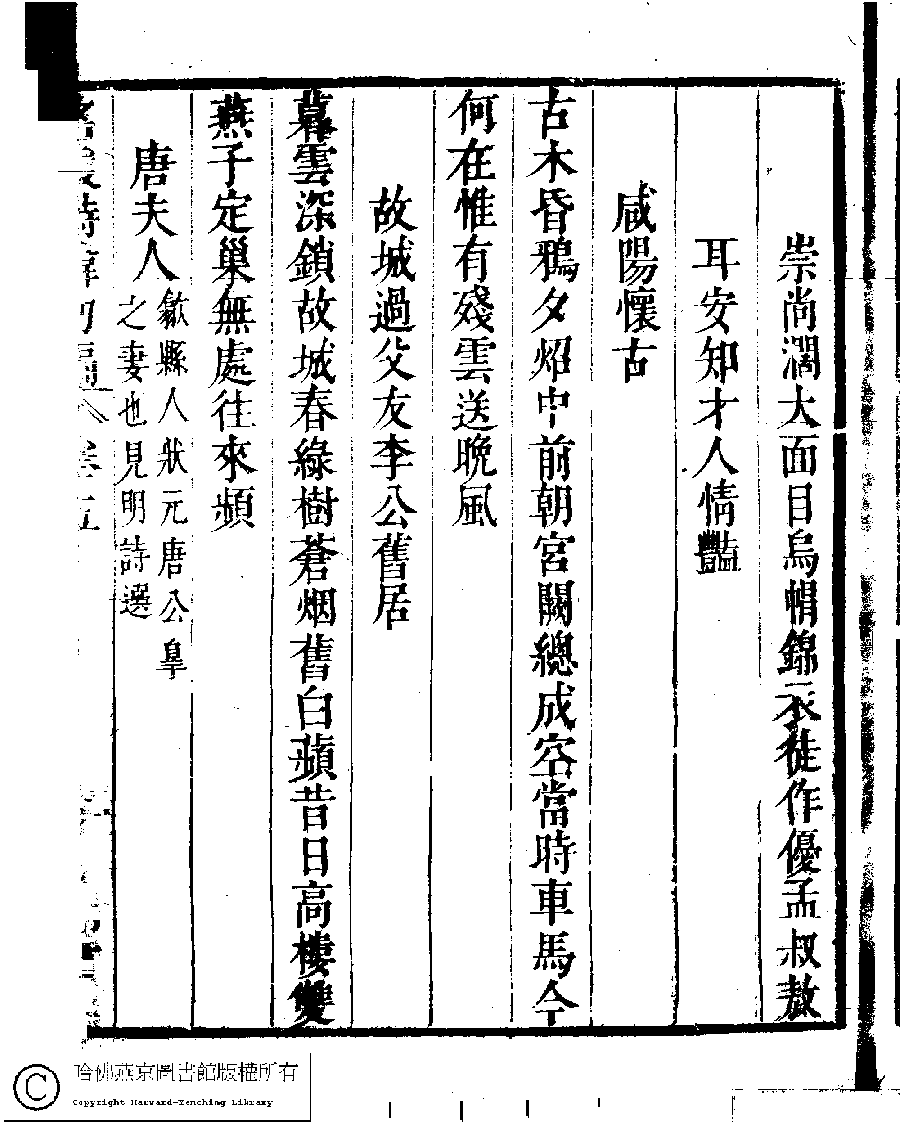 崇尚濶大面目烏帽錦衣徒作優孟叔敖
耳安知才人情豔
咸陽懷古
古木昏鴉夕炤中前朝宮闕總成空當時車馬今
何在惟有殘雲送晩風
故城過父友李公舊居
暮雲深鎖故城春綠樹蒼烟舊白蘋昔日高樓雙
燕子定巢無處往來頻
唐夫人
歙縣人狀元唐公皐
之妻也見明詩選
哈佛燕京圖書館版權所有
Copyright Harvard-Yenching Library